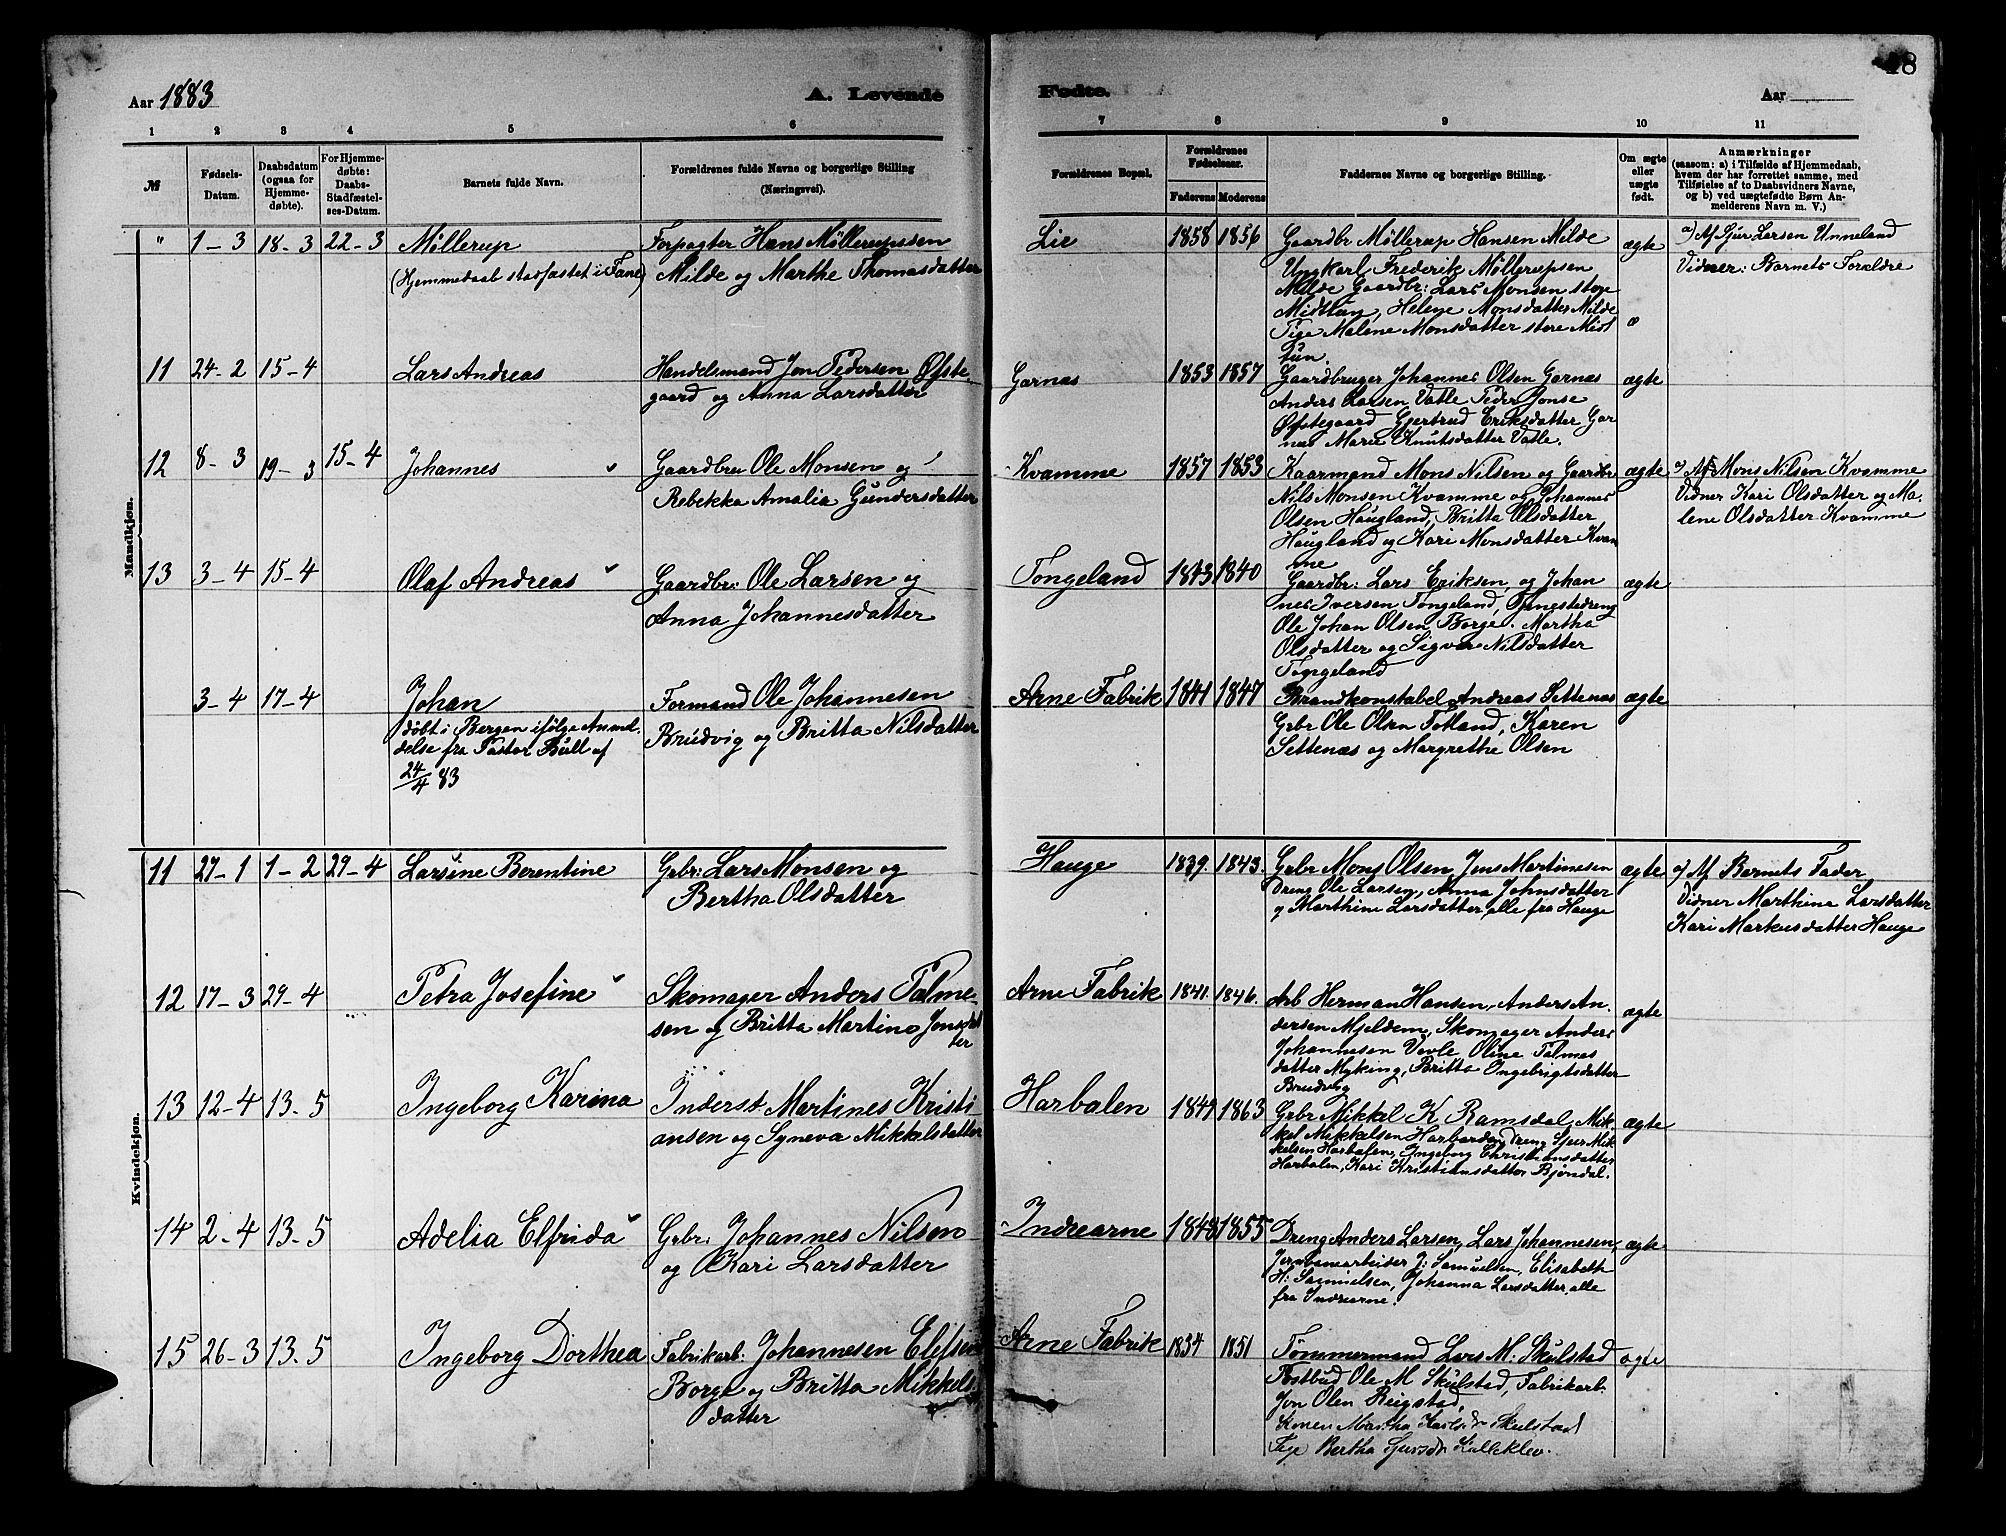 18
Aar 1883
A. Levende
Fødte.
Aar
1 2 3 4 5 6 7 8 9 10 11
№
Fødsels-
Datum.
Daabsdatum
(ogsaa for
Hjemme-
døbte).
For Hjemme-
døbte:
Daabs-
Stadfæstel-
ses-Datum.
Barnets fulde Navn.
Forældrenes fulde Navne og borgerlige Stilling
(Næringsvei).
Forældrenes Bopæl.
Forældrenes
Fødselsaar.
Faderens Moderens
Faddernes Navne og borgerlige Stilling.
Om ægte
eller
uægte
født.
Anmærkninger
(saasom: a) i Tilfælde af Hjemmedaab,
hvem der har forrettet samme, med
Tilføielse af to Daabsvidners Navne,
og b) ved uægtefødte Børn An-
melderens Navn m. V.)
Mandkjøn.
" 1-3 18-3 22-3 Møllerup
(Hjemmedaab stadfæstet i Fane)
Forpagter Hans Møllerupssen
Milde og Marthe Thomasdatter
Lie 1858 1856
Gaardbr Møllerup Hansen Milde
Ungkarl Frederik Møllerupsen
Milde Gaardbr: Lars Monsen store
Midttun, Helene Monsdatter Milde
Pige Malene Monsdatter store Midt
tun.
ægte
a) Af Sjur Larsen Unneland
Vidner: Barnets Forældre
11 24-2 15-4 Lars Andreas
Handelsmand Jon Pedersen Øfste-
gaard og Anna Larsdatter
Garnæs 1853 1857
Gaardbruger Johannes Olsen Garnæs
Anders Larsen Vatle Peder Jonse
Øfstegaard Gjertrud Eriksdatter Gar
næs Marie Knutsdatter Vatle.
ægte
12 8-3 19-3 15-4 Johannes
Gaardbr Ole Monsen og
Rebekka Amalia Gundersdatter
Kvamme 1857 1853
Kaarmand Mons Nilsen og Gaardbr
Nils Monsen Kvamme og Johannes
Olsen Haugland, Britta Olsdatter
Haugland og Kari Monsdatter Kvam
me
ægte
a) Af Mons Nilsen Kvamme
Vidner Kari Olsdatter og Ma-
lene Olsdatter Kvamme
13 3-4 15-4 Olaf Andreas
Gaardbr: Ole Larsen og
Anna Johannesdatter
Tongeland 1843 1840
Gaardbr: Lars Eriksen, og Johan
nes Iversen Tongeland, Tjenestedreng
Ole Johan Olsen Borge. Martha
Olsdatter og Sigva Nilsdatter
Tongeland
ægte
3-4 17-4 Johan
døbt i Bergen ifølge Anmel-
delse fra Pastor Bull af
24/4 83
Formand Ole Johannesen
Brudvig og Britta Nilsdatter
Arne Fabrik 1841 1847
Brandkonstabel Andreas Settenæs
Grbr Ole Olsen Totland, Karen
Settenæs og Margrethe Olsen
ægte
Kvindekjøn.
11 27-1 1-2 29-4 Larsine Berentine
Grbr: Lars Monsen og
Bertha Olsdatter
Hauge 1839. 1843.
Grbr Mons Olsen, Jens Martinesen
Dreng Ole Larsen, Anna Johnsdatter
og Marthine Larsdatter, alle fra Hauge
ægte
a) Af Barnets Fader
Vidner Marthine Larsdatter
Kari Markusdatter Hauge
12 17-3 29-4 Petra Josefine
Skomager Anders Palme-
sen og Britta Martina Jonsdat
ter
Arne Fabrik 1841. 1846.
Arb Herman Hansen, Anders An-
dersen Mjeldem, Skomager Anders
Johannesen Vevle Oline Palmes
datter Myking, Britta Ingebrigtsdatter
Brudvig
ægte
13 12-4 13-5 Ingeborg Karina
Inderst Martines Kristi
ansen og Syneva Mikkelsdatter
Harbalen 1849 1863
Grbr Mikkel K Ramsdal, Mik-
kel Mikkelsen Harbarden, Dreng Sjur Mik
kelsen Harbalen, Ingeborg Christiansdatter
Harbalen, Kari Kristiansdatter Bjøndal.
ægte
14 2-4 13-5 Adelia Elfrida
Grbr: Johannes Nilsen
og Kari Larsdatter
Indrearne 1848 1855
Dreng Anders Larsen, Lars Johannesen,
Jernbanearbeider J: Samuelsen, Elisabeth
H: Samuelsen, Johanna Larsdatter, alle
fra Indrearne.
ægte
15 26-3 13-5 Ingeborg Dorthea
Fabrikarb. Johannesen Elefsen
Borge og Britta Mikkels-
datter
Arne Fabrik 1834 1851
Tømmermand Lars M. Skulstad
Postbud Ole M Skulstad, Fabrikarb.
Jon Olen Reigstad,
Konen Martha Karlsdr Skulstad
Pige Bertha Sjursdr Kalleklev.
ægte